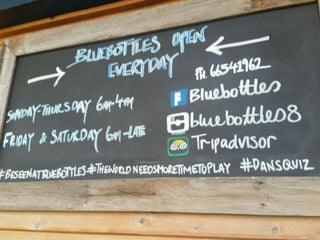 BLUEBOTTLES OPEN
EVERYDAY
PH. 66541962
Bluebottles
SUNDAY-THURSDAY 6am-4pm
bluebottles8
FRIDAY & SATURDAY 6am-LATE
Tripadvisor
#BESEENATBLUEBOTTLES #THEWORLDNEEDSMORETIMETOPLAY #DANSQUIZ